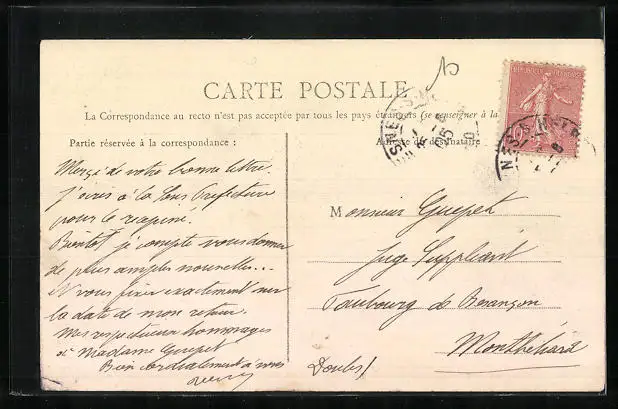 CARTE POSTALE
La Correspondance au recto n'est pas acceptée par tous les pays étrangers (se renseigner à la
Partie réservée à la correspondance :
Adresse du destinataire
REPUBLIQUE FRANÇAISE
Merci de votre bonne lettre.
J'irai à la Sous Préfecture
pour le
Bientôt je compte vous donner
de plus amples nouvelles...
et vous fixer exactement sur
la date de mon retour.
Mes respectueux hommages
à Madame Guepet
Bien cordialement à vous
Monsieur Guepet
Juge Suppléant
Faubourg de Besançon
Montbéliard
Doubs